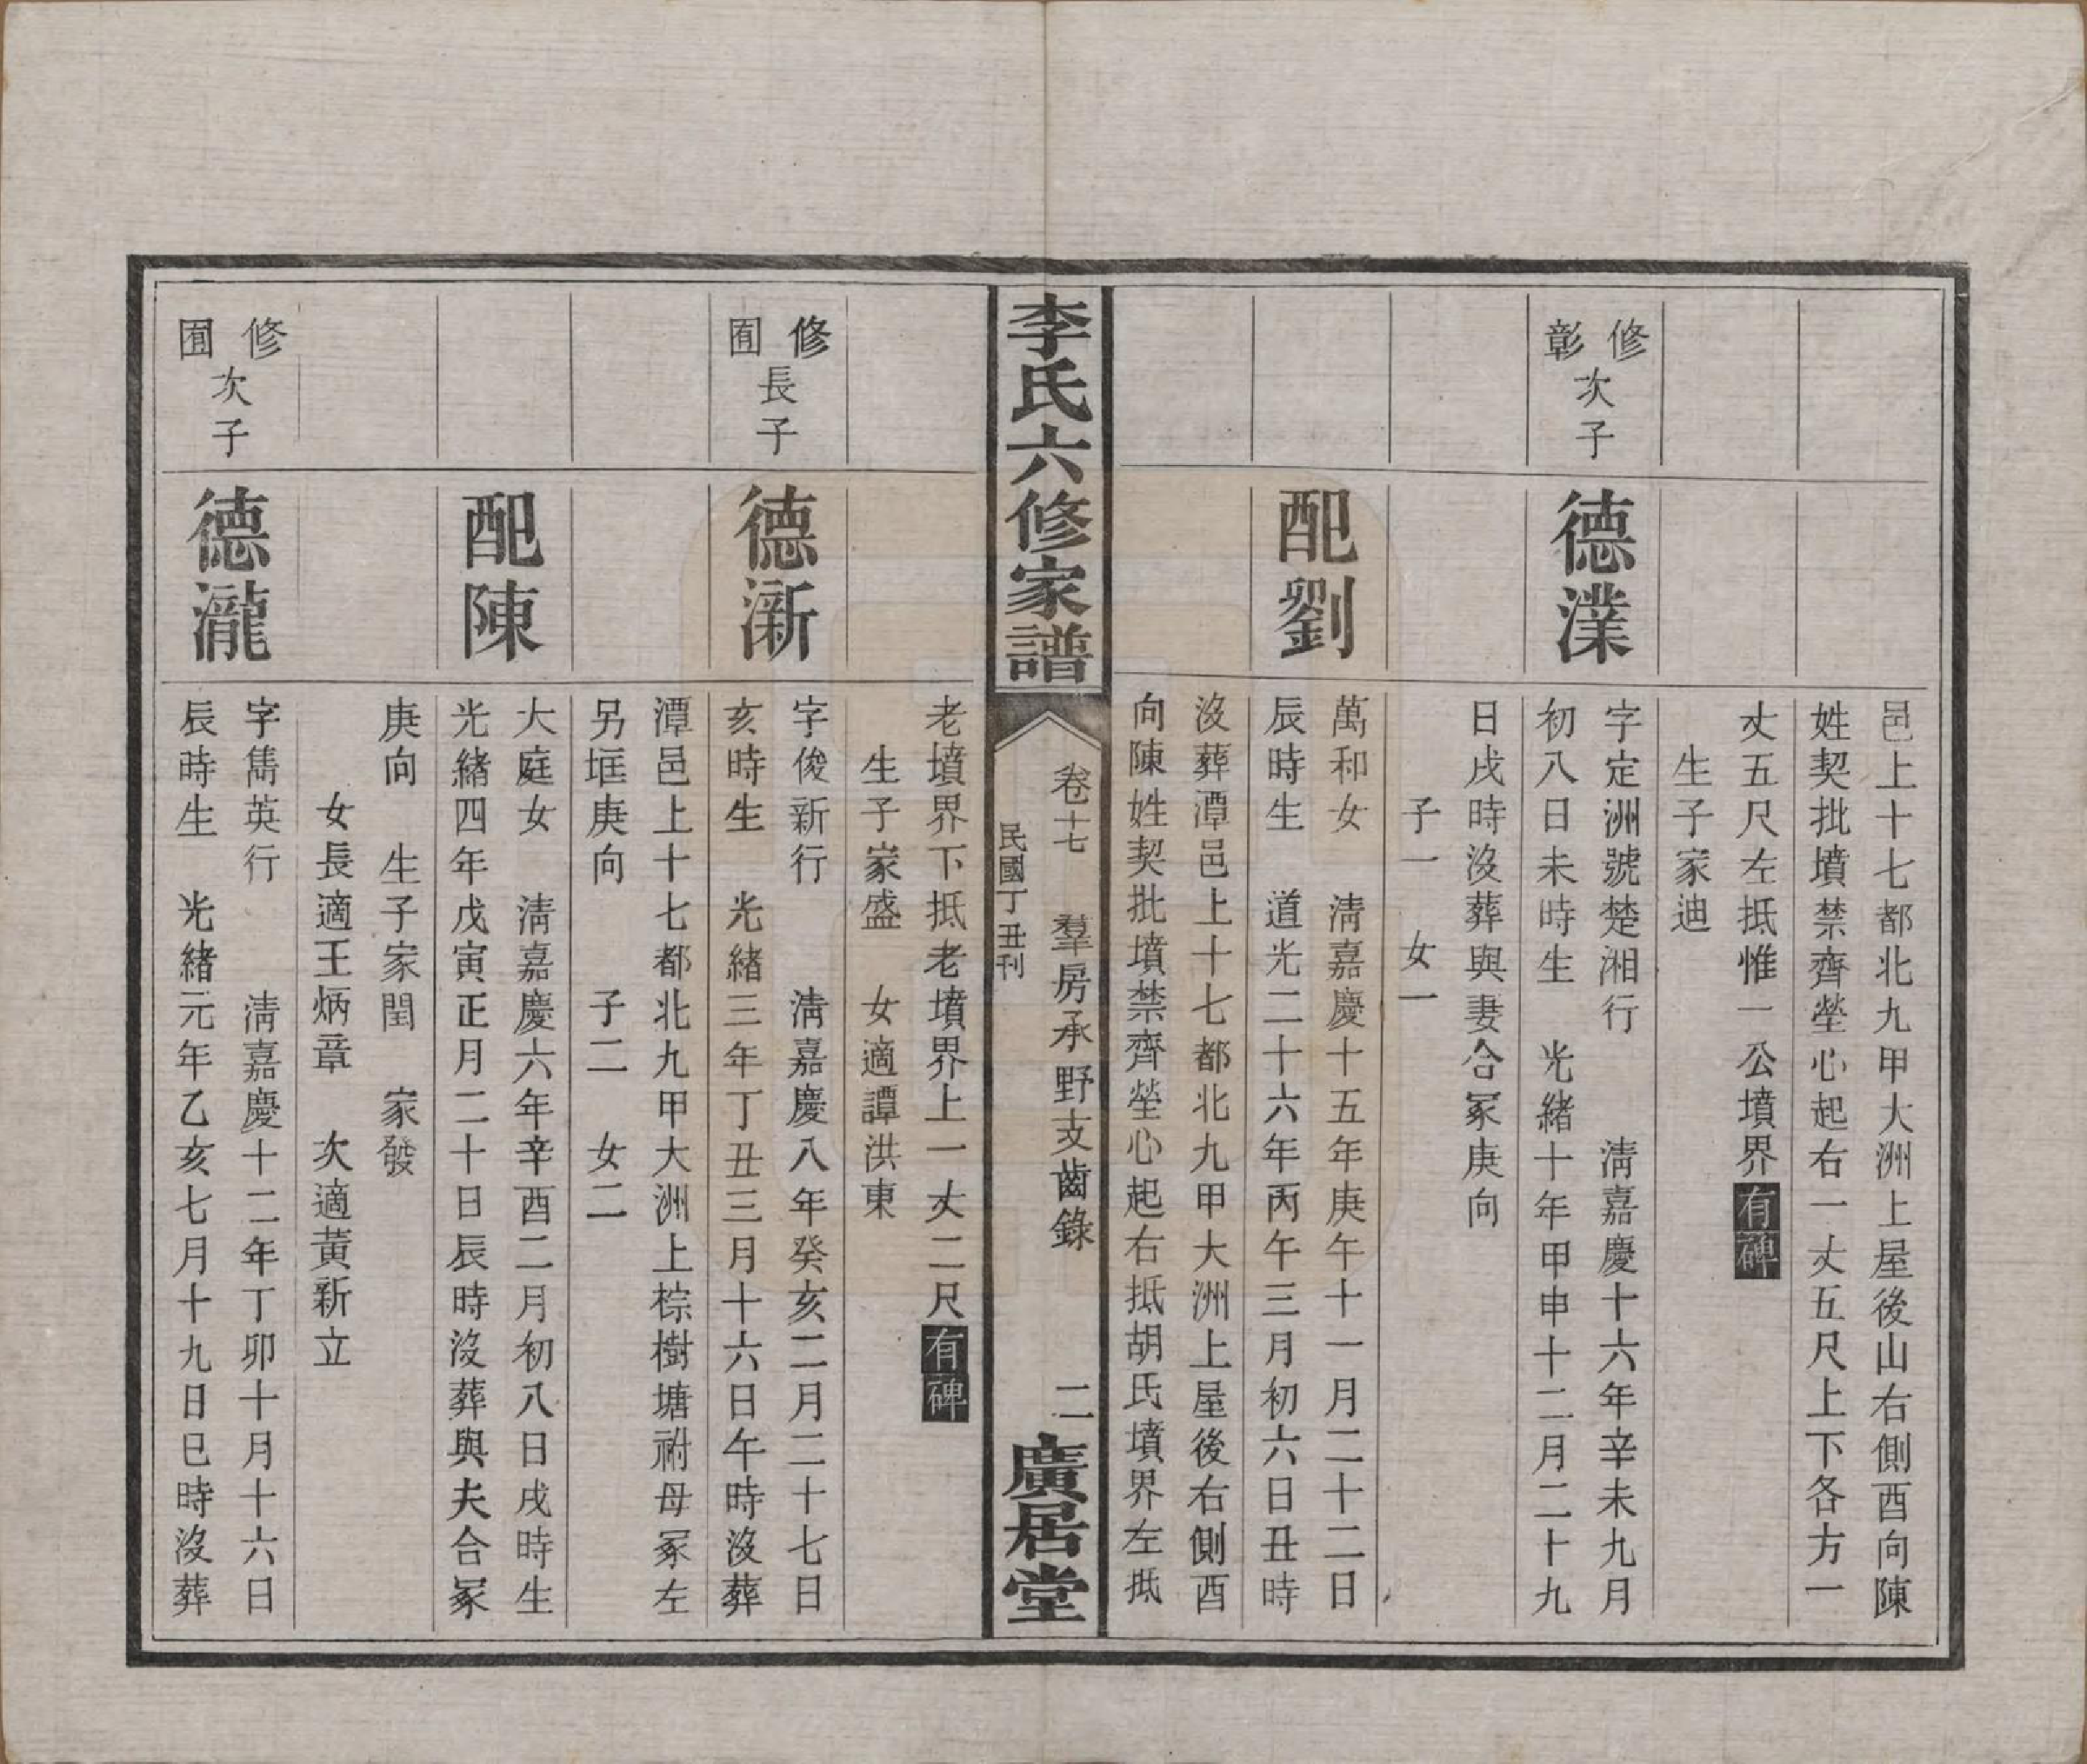 邑上十七都北九甲大洲上屋後山右側酉向陳
姓契批墳禁齊塋心起右一丈五尺上下各方一
丈五尺左抵惟一公墳界有碑
生子家迪
修彰次子
德濮
字定洲號楚湘行　淸嘉慶十六年辛未九月
初八日未時生　光緒十年甲申十二月二十九
日戌時沒葬與妻合冢庚向
子一　女一
配劉
萬和女　淸嘉慶十五年庚午十一月二十二日
辰時生　道光二十六年丙午三月初六日丑時
沒葬潭邑上十七都北九甲大洲上屋後右側酉
向陳姓契批墳禁齊塋心起右抵胡氏墳界左抵
李氏六修家譜
卷十七　羣房承野支齒錄　二
民國丁丑刊
廣居堂
老墳界下抵老墳界上一丈二尺有碑
生子家盛　女適譚洪東
修囿長子
德漸
字俊新行　淸嘉慶八年癸亥二月二十七日
亥時生　光緒三年丁丑三月十六日午時沒葬
潭邑上十七都北九甲大洲上棕樹塘祔母冢左
另堐庚向　子二　女二
配陳
大庭女　淸嘉慶六年辛酉二月初八日戌時生
光緒四年戊寅正月二十日辰時沒葬與夫合冢
庚向　生子家閏　家發
女長適王炳章　次適黃新立
修囿次子
德瀧
字雋英行　淸嘉慶十二年丁卯十月十六日
辰時生　光緒元年乙亥七月十九日巳時沒葬